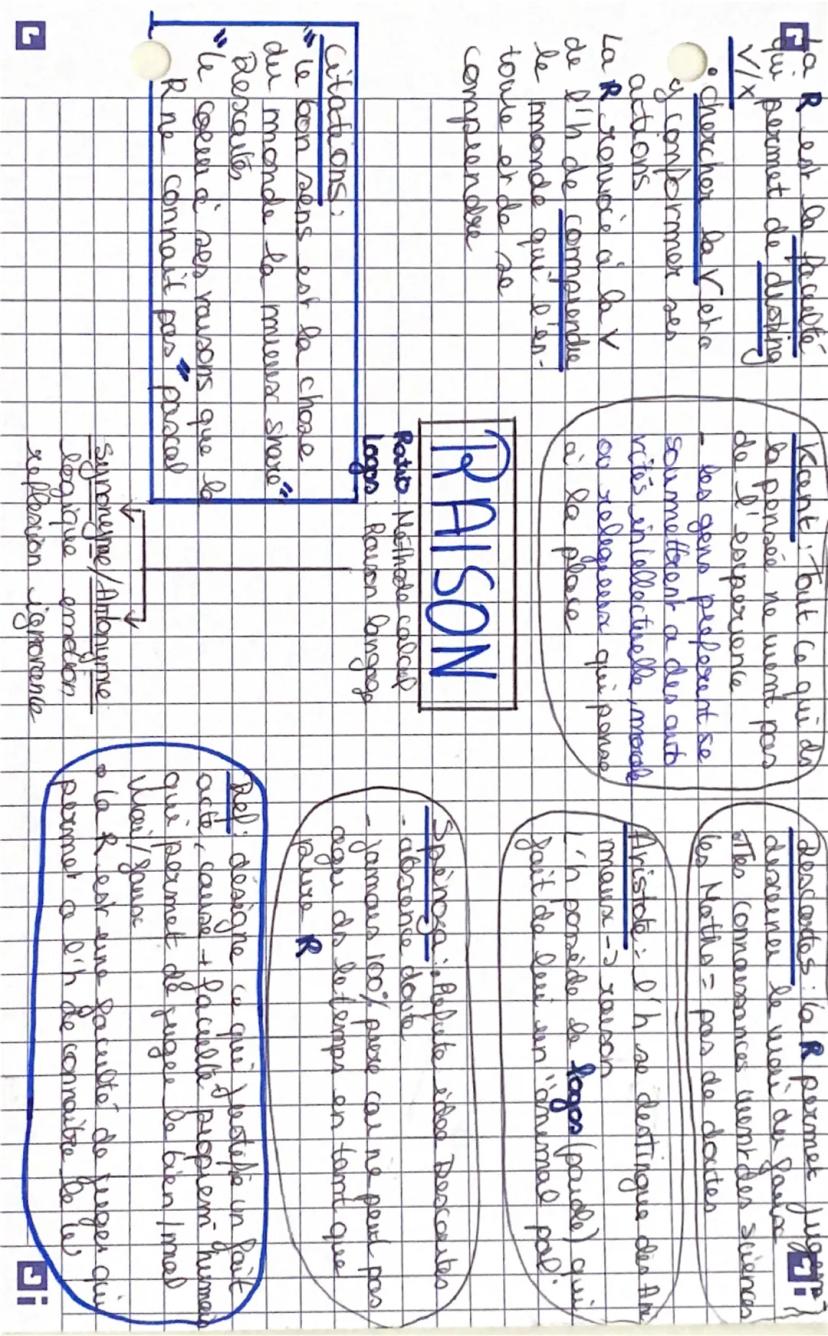 La R est la faculté
qui permet de disting
V/X
• chercher la V et a
y conformer ses
actions
La R renvoie à la V
de l'h de comprendre
le monde qui l'en-
toure et de se
comprendre
Kant : Tout ce qui ds
la pensée ne vient pas
de l'experience
- les gens preferent se
soumettrent a des auto
rités intellectuelle, morale
ou religieux qui pense
à la place
Descartes : la R permet jugemt
descerner le vrai du faux
Tes connaissances vient des sciences
les Maths = pas de doutes
Aristote : l'h se destingue des Ani
maux -> raison
l'h possède le logos (parole) qui
fait de lui un "animal pol.
RAISON
Ratio Méthode calcul
Logos Raison langage
Spinoza : Refute idée Descartes
- absence doute
- jamais 100% pure car ne peut pas
agir ds le temps en tant que
pure R
Citations :
"le bon sens est la chose
du monde la mieux share"
Descartes
"le coeur à ses raisons que la
R ne connait pas" pascal
Synonyme/Antonyme
logique emotion
reflexion ignorance
Def : désigne ce qui justifie un fait
acte, cause + faculté propremt humain
qui permet de juger le bien/mal
Vrai/faux
• la R est une faculté de juger qui
permet a l'h de connaître le